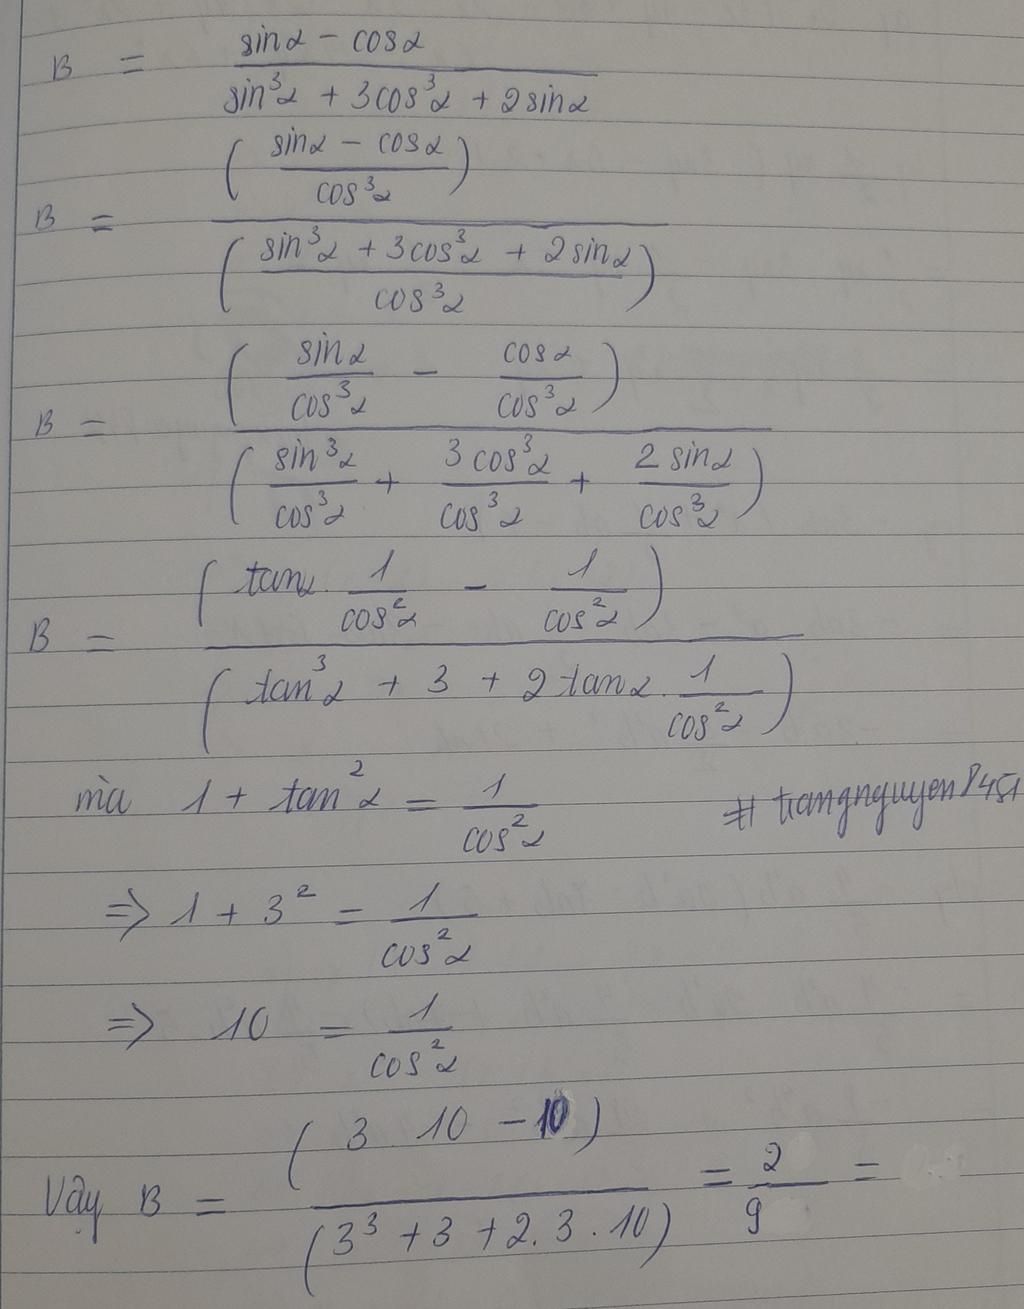 B = (sinα - cosα) / (sin³α + 3cos³α + 2sinα)
B = ((sinα - cosα) / cos³α) / ((sin³α + 3cos³α + 2sinα) / cos³α)
B = (sinα / cos³α - cosα / cos³α) / (sin³α / cos³α + 3cos³α / cos³α + 2sinα / cos³α)
B = (tanα . 1 / cos²α - 1 / cos²α) / (tan³α + 3 + 2tanα . 1 / cos²α)
mà 1 + tan²α = 1 / cos²α # trangnguyen8451
⇒ 1 + 3² = 1 / cos²α
⇒ 10 = 1 / cos²α
Vậy B = (3 10 - 10) / (3³ + 3 + 2.3.10) = 2 / 9 =